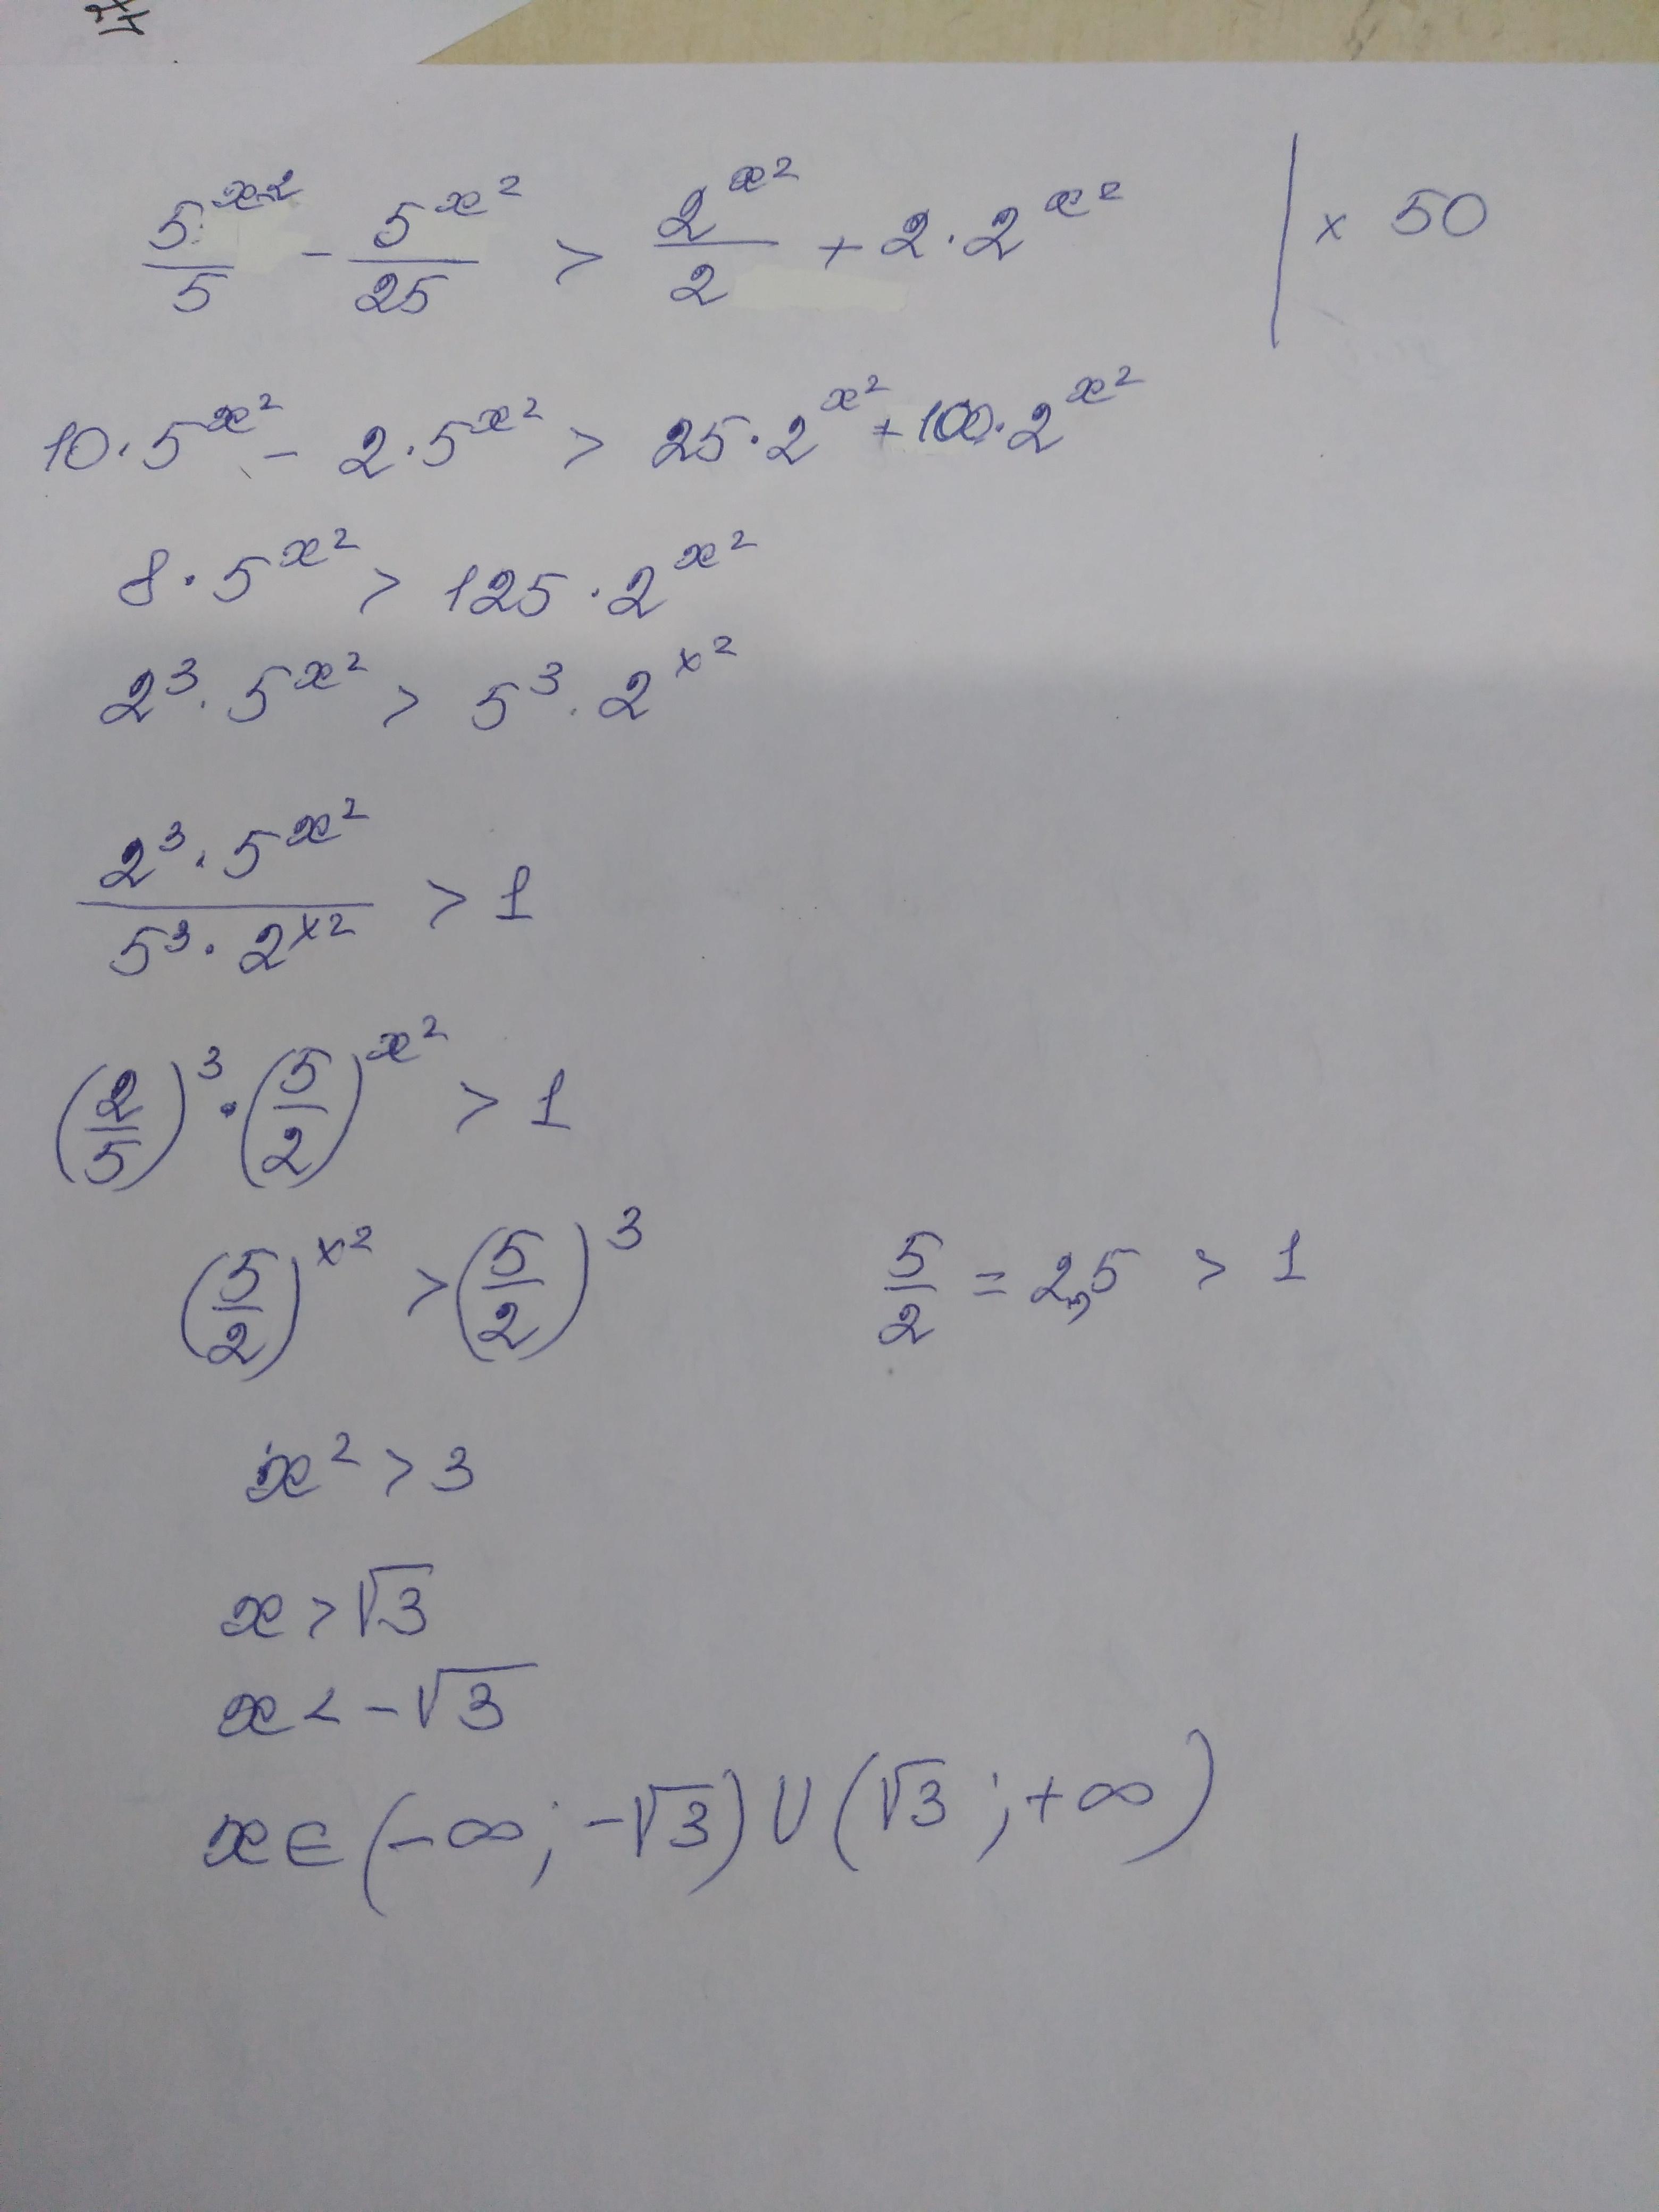 5^{x^2}/5 - 5^{x^2}/25 > 2^{x^2}/2 + 2·2^{x^2} | × 50
10·5^{x^2} - 2·5^{x^2} > 25·2^{x^2} + 100·2^{x^2}
8·5^{x^2} > 125·2^{x^2}
2^3·5^{x^2} > 5^3·2^{x^2}
(2^3·5^{x^2})/(5^3·2^{x^2}) > 1
(2/5)^3·(5/2)^{x^2} > 1
(5/2)^{x^2} > (5/2)^3 5/2 = 2,5 > 1
x^2 > 3
x > √3
x < -√3
x ∈ (-∞; -√3) ∪ (√3; +∞)